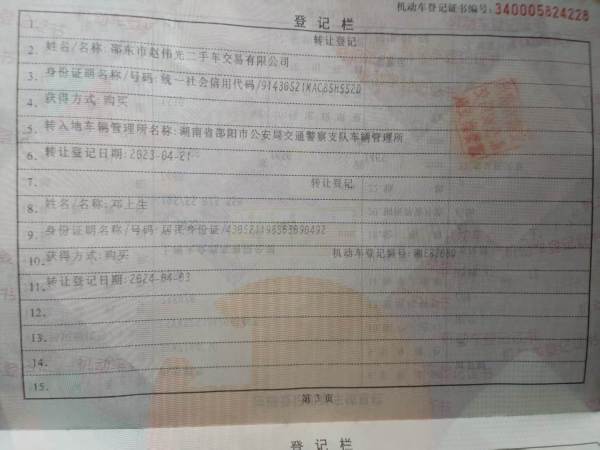 机动车登记证书编号:340005824228
登记栏
1. 转让登记
2. 姓名/名称:邵东市赵伟光二手车交易有限公司
3. 身份证明名称/号码:统一社会信用代码/
4. 获得方式:购买
5. 转入地车辆管理所名称:湖南省邵阳市公安局交通警察支队车辆管理所
6. 转让登记日期:2023-04-21
7. 转让登记
8. 姓名/名称:邓上生
9. 身份证明名称/号码:居民身份证/
10. 获得方式:购买 机动车登记编号:
11. 转让登记日期:2024-04-03
12.
13.
14.
15.
第3页
登记栏